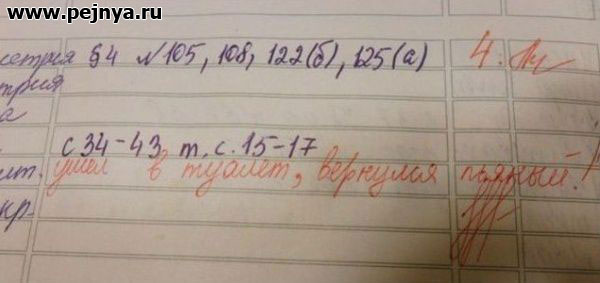 www.pejnya.ru
етрия §4 №105, 108, 122(б), 125(а) 4.
трия
а
с 34-43, т. с. 15-17
ушел в туалет, вернулся пьяный!